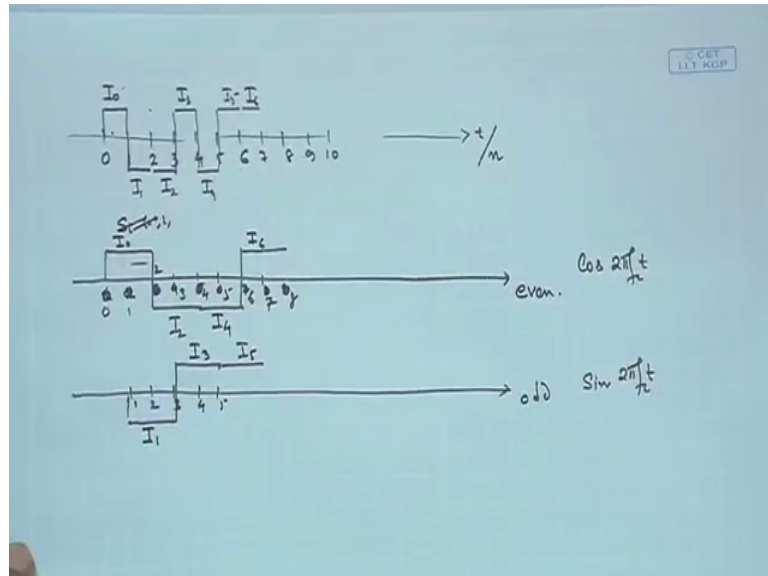 © CET
I.I.T. KGP
I₀ I₃ I₅ I₆
0 2 3 4 5 6 7 8 9 10 t/n
I₁ I₂ I₄
I₀ I₆
2
3 4 5 6 7 8 even. Cos 2πfₙt
0 1
I₂ I₄
I₃ I₅
1 2 3 4 5 odd Sin 2πfₙt
I₁